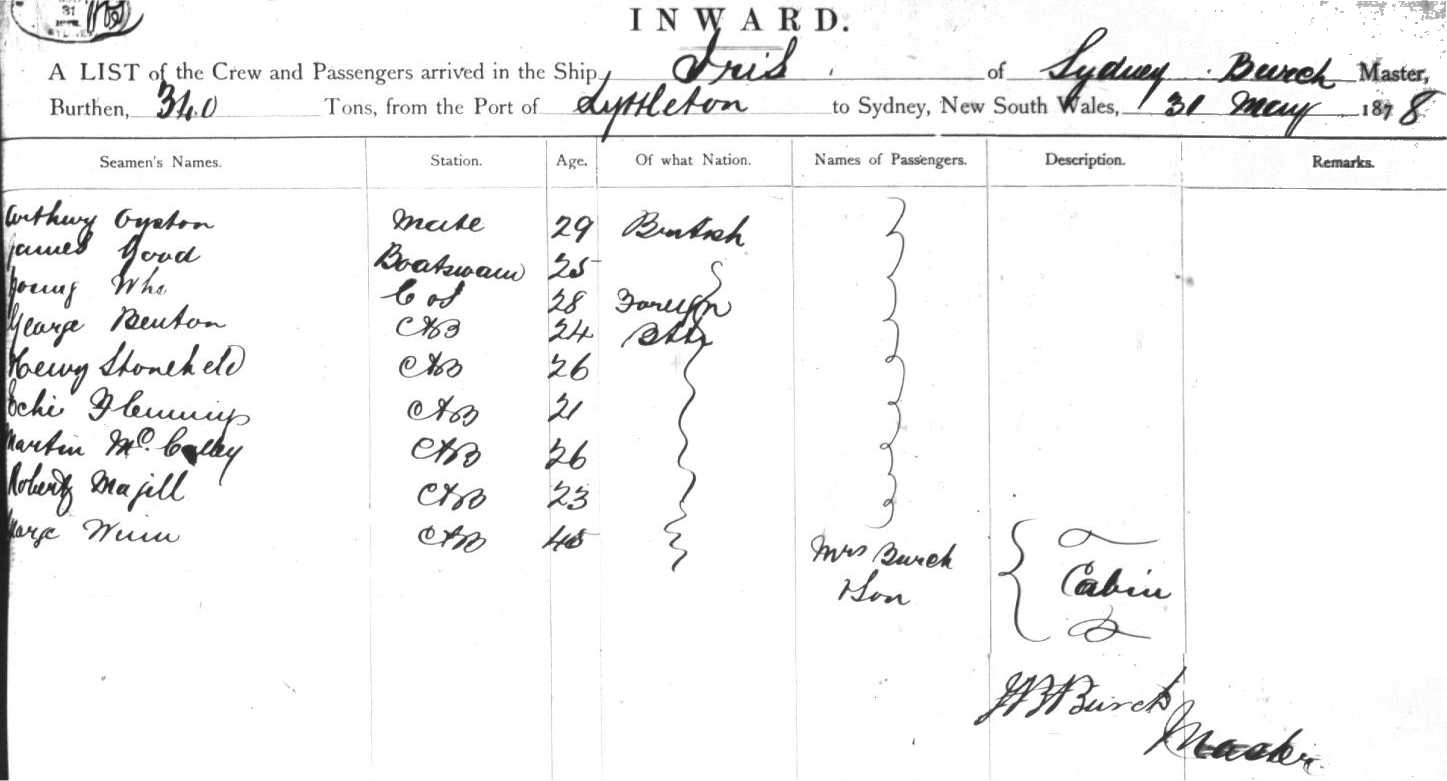 31
INWARD.
A LIST of the Crew and Passengers arrived in the Ship, Iris of Sydney Burch Master,
Burthen, 340 Tons, from the Port of Lyttleton to Sydney, New South Wales, 31 May 1878
Seamen's Names. Station. Age. Of what Nation. Names of Passengers. Description. Remarks.
Arthur Oyston Mate 29 British
James Good Boatswain 25
Young 28 Foreign
George Benton AB 24
Henry AB 26
Flemming AB 21
Martin Mc AB 26
Robert Magill AB 23
George Winn AB 45
Mrs Burch
Son
Cabin
Burch
Master